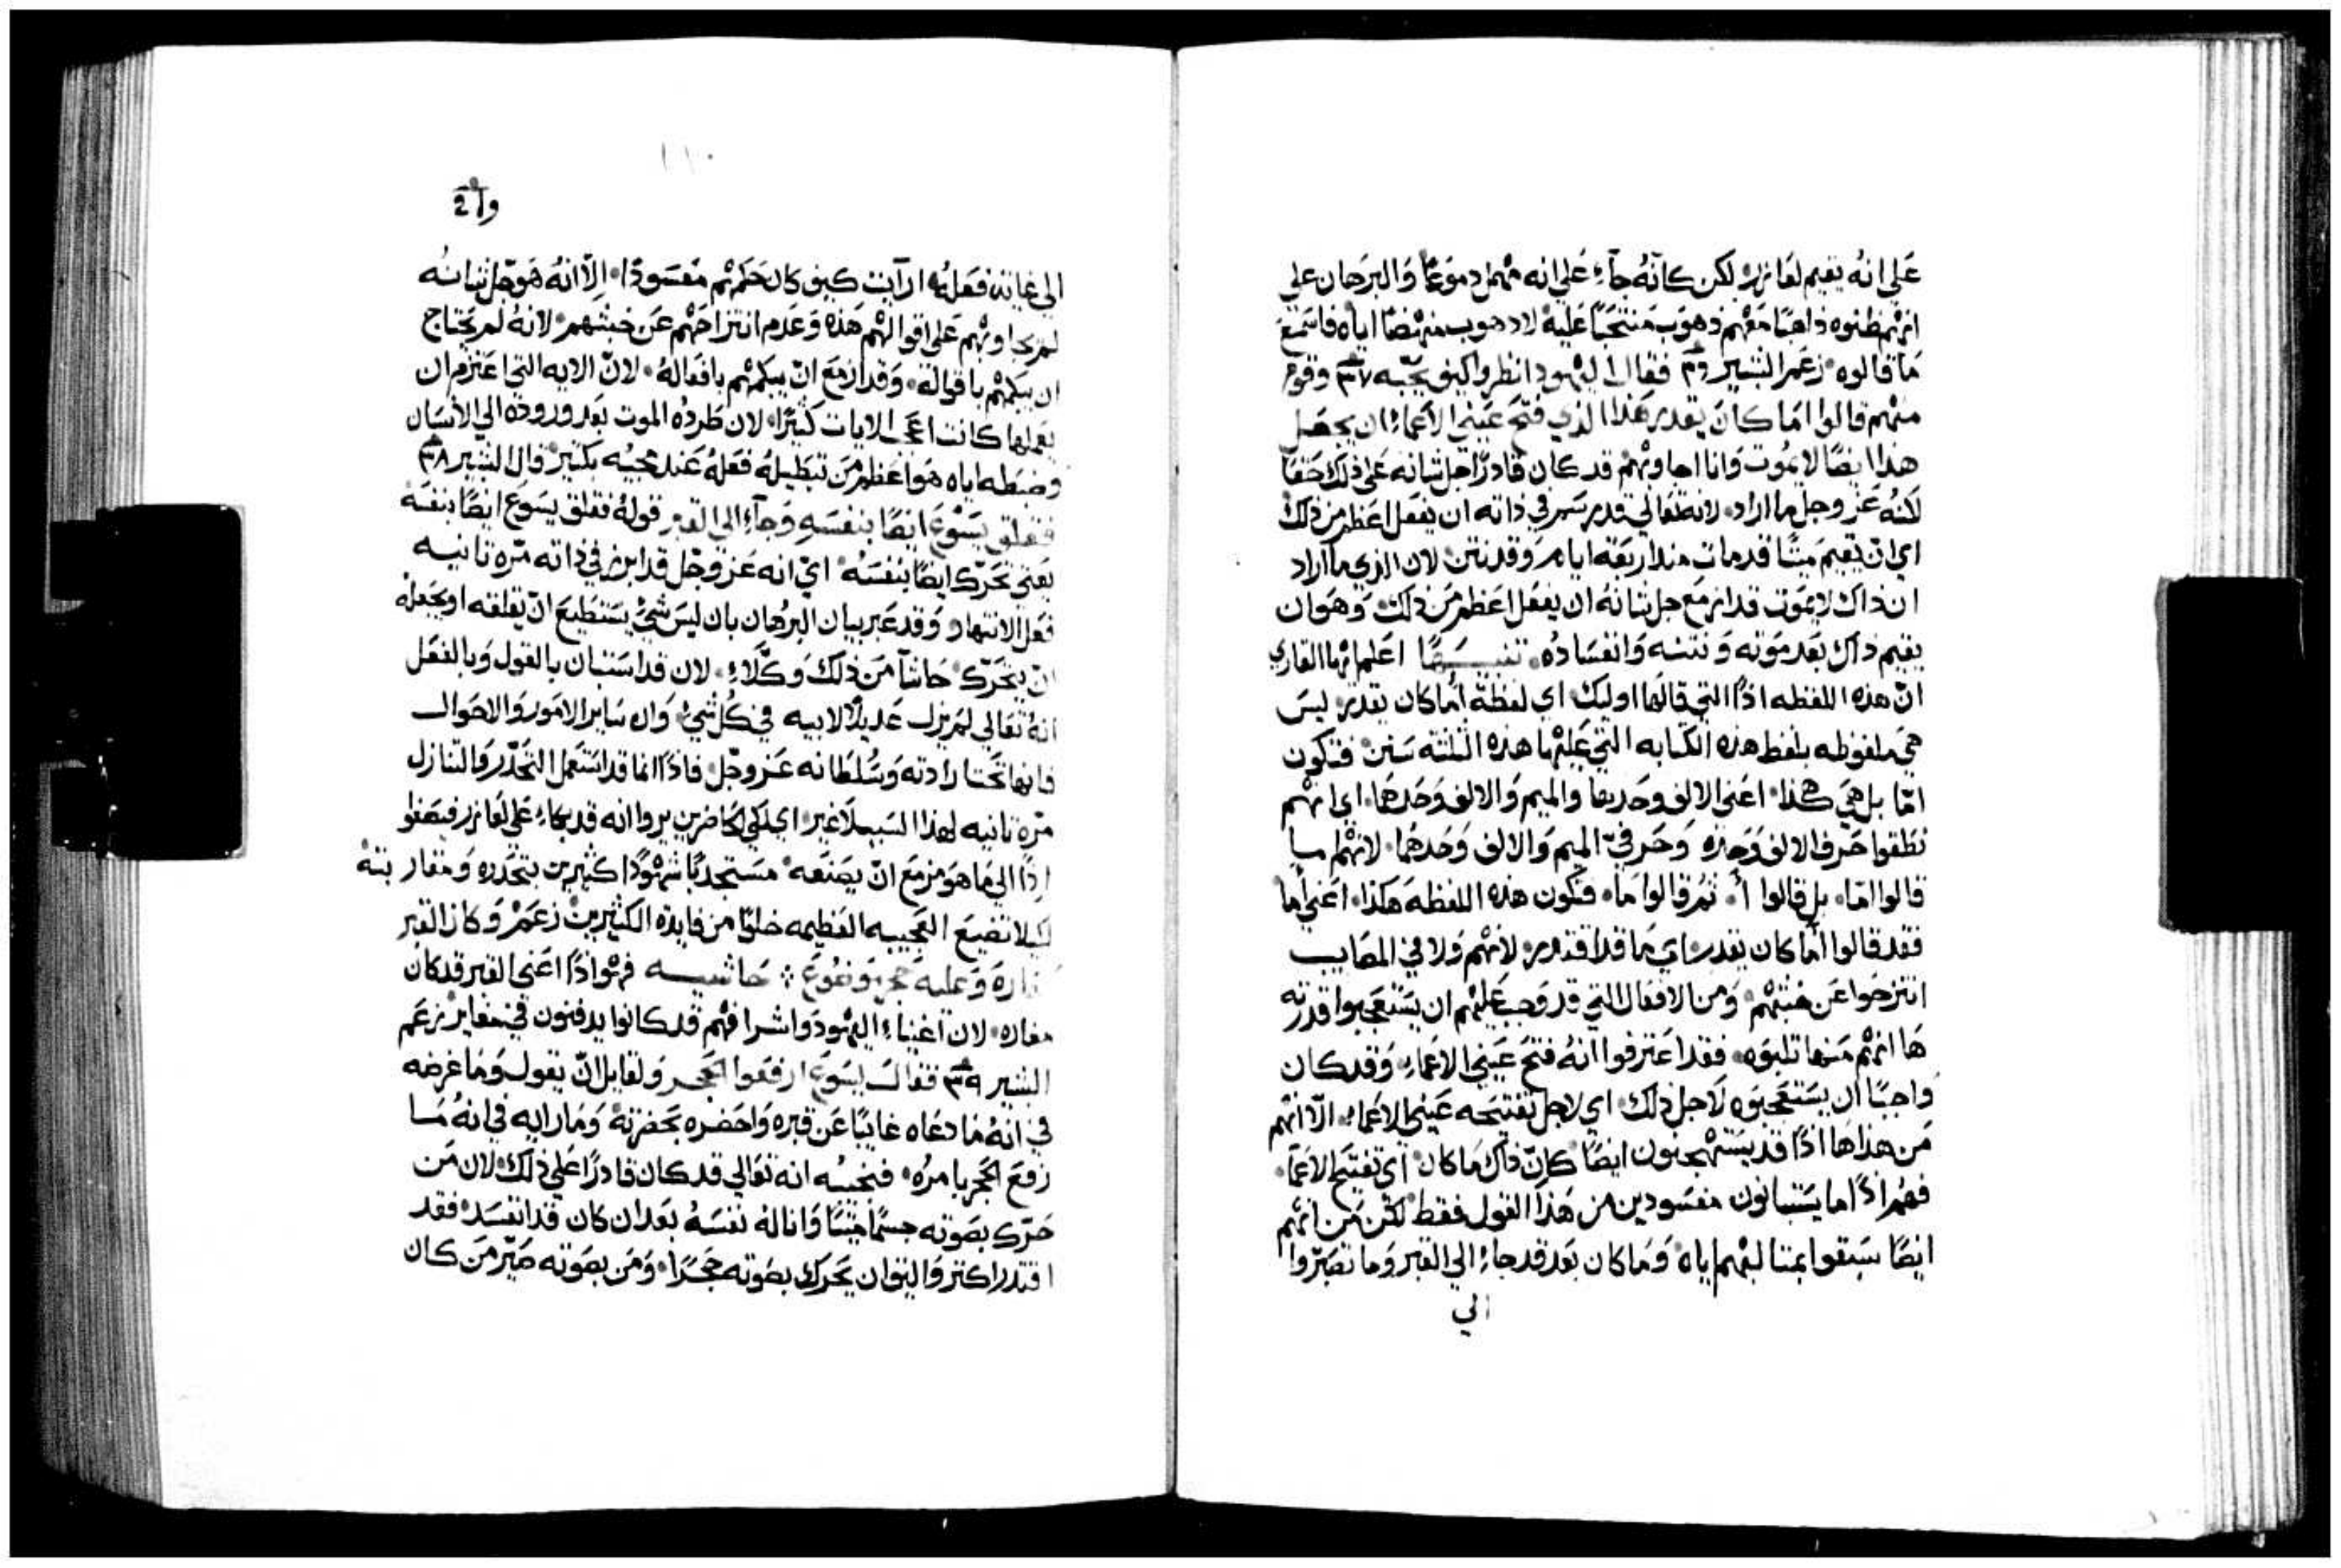 علي انهُ يقيم لعازر، لكن كانهُ جآءِ علي انه مهمل دموعًا وَالبرهان علي
انهم ظنوه ذاهبًا مَعهم ذهوبَ مَنتحبًا عَليهْ لا ذهوب منهضًا اياه فاستمعْ
مَا قالوه زعمَ البشير فقال اليهود انظروا كيف يحبّه ٣٧ وقوم
منهم قالوا امَا كانَ يقدر هَذا الذي فتحَ عَيني الاعماءِ ان يجعَل
هذا ايضًا لا يمُوت وَانا اجاوبُهم قد كان قادرًا جل شانه عَلي ذلك حَقًا
لكنهُ عَز وجل ما اراد، لانه تعَالي قد رسَم في ذاته ان يفعَل اعَظم من ذلك
اي انّ يقيمَ ميتًا قد مات منذ اربَعة ايام وَقد نتن، لان الذي ما اراد
ان ذاك لا يموَت قد ازمَع جل شانهُ ان يفعَل اعَظم من ذلكَ، وَهوَ ان
يقيم ذاك بَعد مَوته وَنتنه وَانفسَادهُ، تنبيـــهًا اعَلم ايها القاري
انّ هذه اللفظه اذًا التي قالهَا اوليك، اي لفظة أمَا كان يقدر، ليسَ
هيَ ملفوظه بلفظ هذه الكتابه التي عَليها هذه الثلثة سَنن، فتكون
امّا بل هيَ هكذا، اعَني الالف وحَدها والميم وَالالف وَحَدهَا، اي انهم
نطَقوا حَرف الالف وَحده وَحَرفيّ الميم وَالالف وَحَدهُما، لانهم ما
قالوا امّا، بل قالوا أ، ثمَ قالوا مَا، فتكون هذه اللفظه هَكذا، اعَني أما
فقد قالوا أمَا كان يقدر، اي مَا قد اقتدر، لانهم وَلا في المصَايب
انتزحوا عَن خبثهمْ، وَمن الافعَال التي قد وَجبَ عَليهم ان يسَتعَجبوا قدرته
هَا انهم منها تلبوَه، فقد اعَترفوا انهُ فتحَ عَيني الاعماءِ، وَقد كان
وَاجبًا ان يسَتعَجبوَه لاجل ذلك، اي لاجل تفتيحَه عَيني الاعماءِ، الّا انهم
مَن هذا هَا اذًا قد يستهجنون ايضًا كانّ ذاك مَا كان، اي تفتيح الاعَما،
فهُم اذًا اما يسَتبانون مفسَودين من هَذا القول فقط، لكن مَن انهم
ايضًا سَبقوا بمتالبهم اياه، وَمَا كان بَعد قد جاءِ الي القبر وَما تصَبّروا
الي
الي غاية فعَلهُ، ارآيت كيف كان حَكمهم مَفسَودًا، الّا انهُ هوَ جل شانه
لم يجاوبهم عَلي اقوالهم هَذه وَعَدم انتزاحَهم عَن خبثهم، لانهُ لم يحَتاج
ان يبكمهْم باقواله، وَقد ازمَع انّ يبكمهم بافعَالهُ، لانّ الايه التي اعَتزم ان
يعَملها كانت اعَجب الايات كثيرًا، لان طَردهُ الموت بَعد ورودَه الي الانسَان
وضبَطه اياه هوَ اعَظم مَن تبطَيلهُ فعَلهُ عَند مجيَه بكثير، قال البشير ٣٨
فقلق يسَوْعَ ايضًا بنفسَهِ وَجآءِ الي القبر قولهُ فقلق يسَوعَ ايضًا بنفسَه
يعَني تحَرّك ايضًا بنفسَهُ، اي انه عَز وَجّل قد ابرز في ذاته مَرّه تانيه
فعَل الانتهار وَقد عَبر بيان البرُهان بان ليسَ شيءٌ يسَتطيعَ انّ يقلقه او يجعَلهْ
انّ يتحَرّك، حَاشا مَن ذلكَ وَكلّاءِ، لان قد اسَتبان بالقول وَبالفعَل
انهُ تعَالي لم يزل عَديلًا لابيه في كل شيءٌ، وَان سَاير الامَور وَالاحَوال
فانها تحَت ارادته وَسُلطَانه عَز وجّل، فاذًا انما قد اسَتعَمل التحَدّر وَالتنازل
مرّه تانيه لهذا السَبب لا غير، اي لكي الحَاضرين يروا انه قد بكاءِ عَلي لعَازر فيصَغوا
اذًا الي مَا هوَ مزمعَ انّ يصَنعَه، مسَتجدبًا شهوًدًا كثيرين بتحَدره وَمقاربته
ليلا تضيَع العَجيبه العَظيمه خلوًا من فايدة الكثيرينْ، زعَمْ وَكان القبر
مغارة وَعليه حَجر موَضوعَ، حَاشيـــه فهوَا اذًا اعَني القبر قد كان
مغاره، لان اغنياءِ اليهود وَاشرافهم قد كانوا يدفنون في مغاير، زعَم
البشير ٣٩ فقال يسَوعَ ارفعَوا الحَجر وَلقايل انّ يقول وَمَا غرضه
في انهُ مَا دعَاه غايبًا عَن قبره وَاحَضره بحَضرته، وَمَا رايه في انهُ مَا
رَفعَ الحَجر بامرُه، فنجيبُه انه تعَالي قد كان قادرًا عَلي ذلك، لان مَن
حَرّك بصَوته جسمًا ميتًا وَانالهُ نفسَهُ بَعد ان كان قد انفسَد، فقد
اقتدر اكتر وَاليق ان يحَرك بصَوته حَجرًا، وَمَن بصَوته صَيّر مَن كان